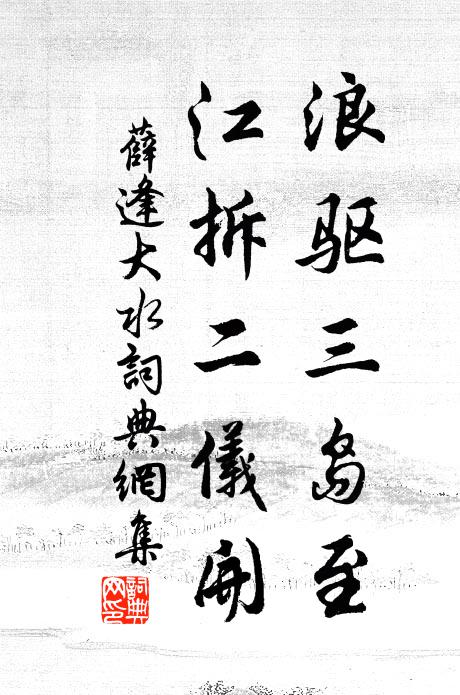 浪驱三岛至
江拆二儀開
薛逢大水詞典網集
詞典
网印